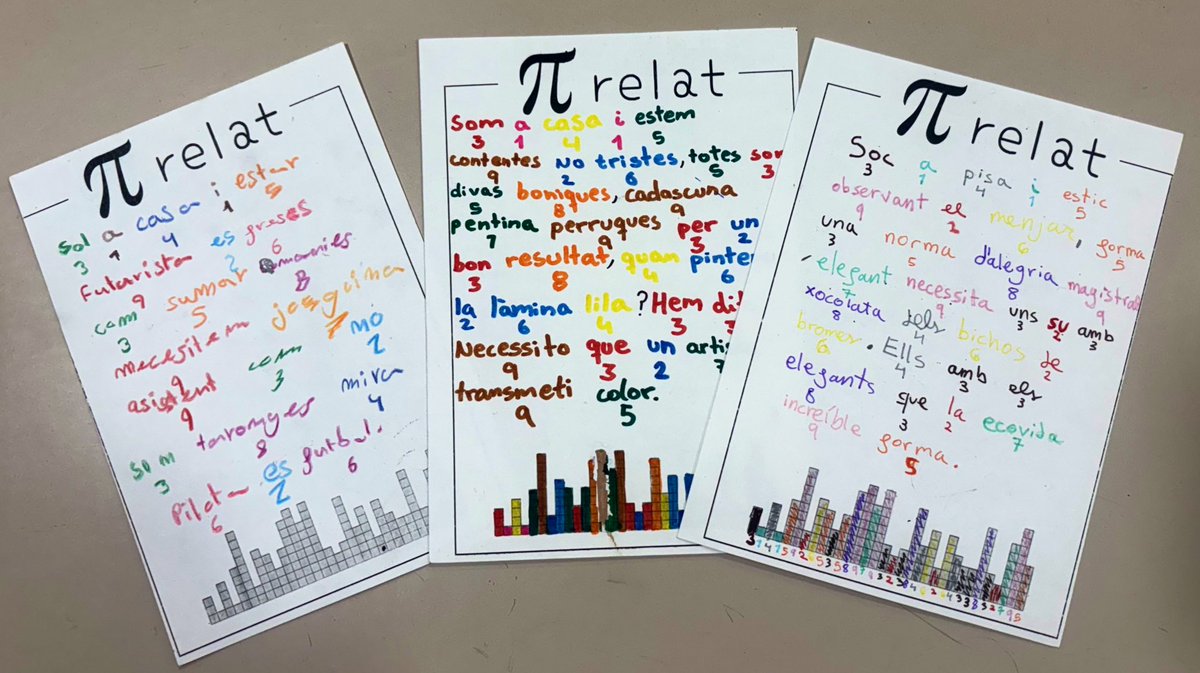 π relat
Sol a casa i estar
3 1 4 1 5
futurista es gresses
9 2 6
com sumar
3 5 8
necesitem josguina
9 7
asistent com no
9 3 2
som taronges mira
3 8 4
Pilota es futbol.
6 2 6
π relat
Som a casa i estem
3 1 4 1 5
contentes No tristes, totes som
9 2 6 5 3
divas boniques, cadascuna
5 8 9
pentina perruques per un
7 9 3 2
bon resultat, quan pinte
3 8 4 6
la làmina lila? Hem dit
2 6 4 3 3
Necessito que un artis
9 3 2 7
transmeti color.
9 5
π relat
Soc a pisa i estic
3 1 4 1 5
observant el menjar, forma
9 2 6 5
una norma d'alegria magistral
3 5 8 9
elegant necessita uns su amb
7 9 3 2 3
xocolata dels bichos de
8 4 6 2
bromes. Ells amb els
6 4 3 3
elegants que la ecovida
8 3 2 7
increíble forma.
9 5
3 1 4 1 5 9 2 6 5 3 5 8 9 7 9 3 2 3 8 4 6 2 6 4 3 3 8 3 2 7 9 5